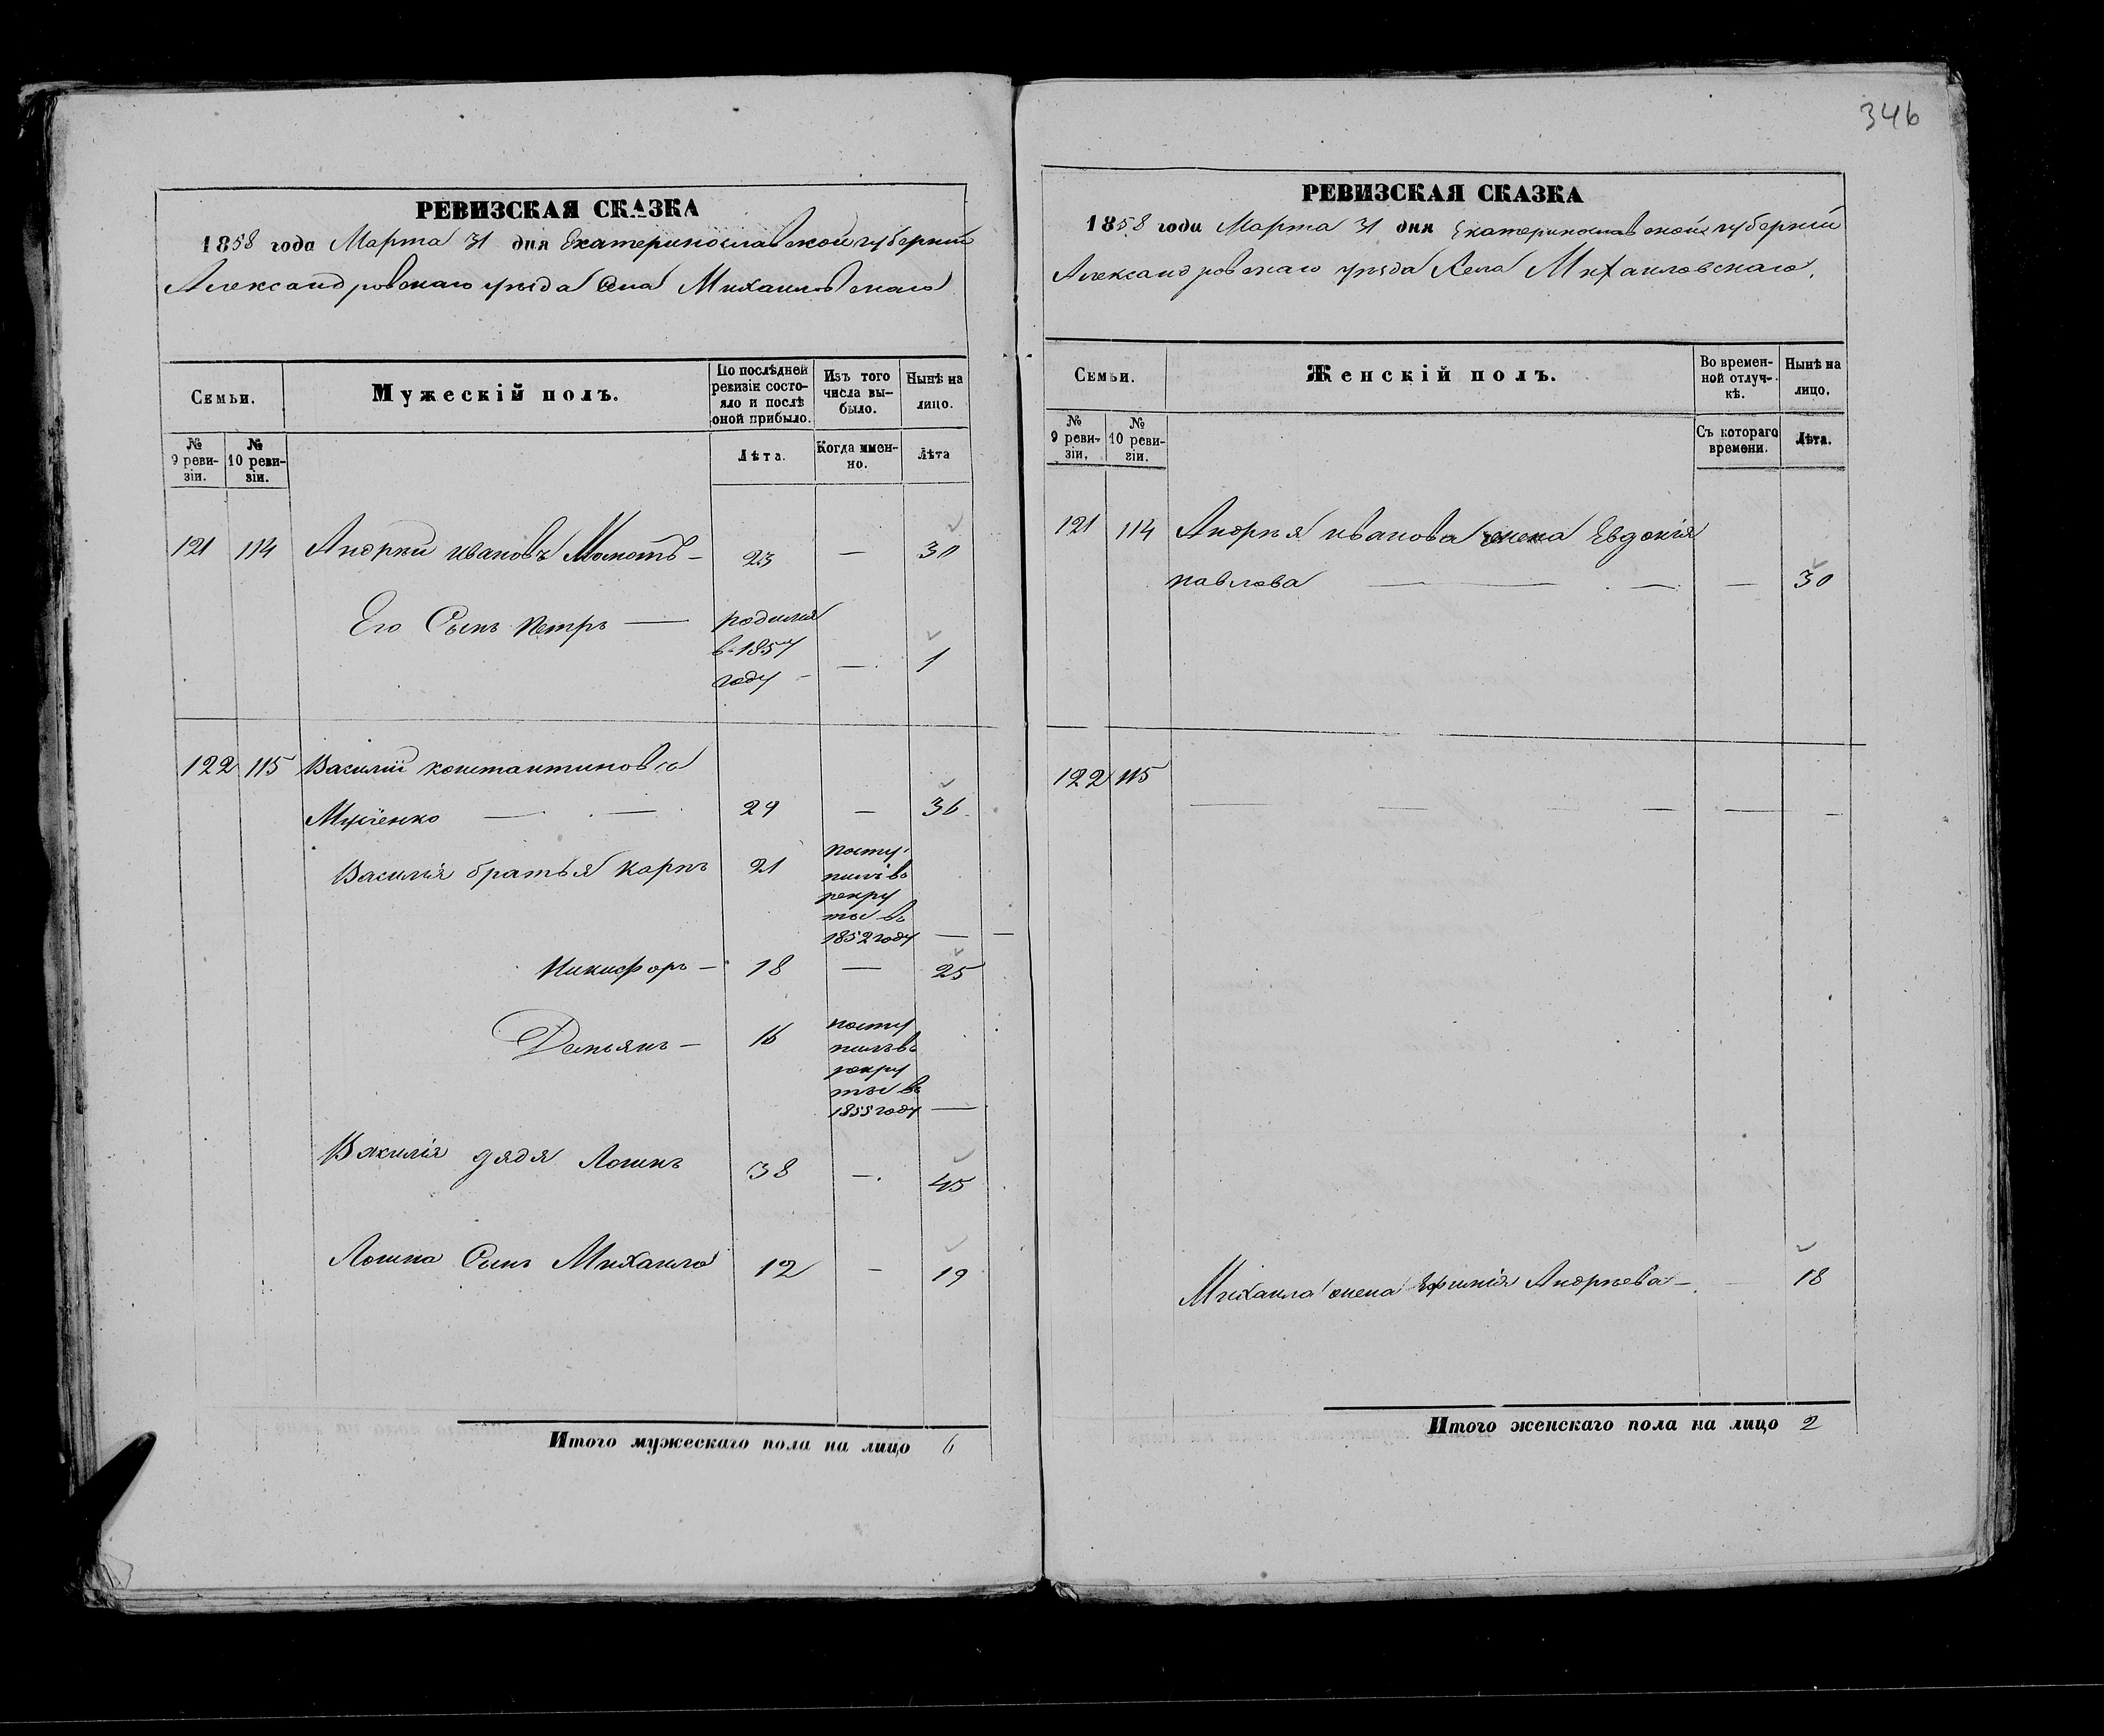 346
РЕВИЗСКАЯ СКАЗКА
1858 года Марта 31 дня Екатеринославской губерніи
Александровскаго уезда Села Михайловскаго
Семьи.
Мужескій полъ.
По послѣдней ревизіи состояло и послѣ оной прибыло.
Изъ того числа выбыло.
Нынѣ на лицо.
№ 9 ревизіи.
№ 10 ревизіи.
Лѣта.
Когда именно.
Лѣта
121 114 Андрей Ивановъ — 23 — 30
Его Сынъ Петръ — родился
въ 1857 — 1
году —
122 115 Василій Константиновъ
29 — 36
Василія братья Карпъ 21 посту-
пилъ въ
рекру
ты въ
1852 году —
Никифоръ — 18 — 25
Демьянъ — 16 посту
пилъ въ
рекру
ты въ
1855 году —
Василія дядя Логинъ 38 — 45
Логина Сынъ Михаило 12 — 19
Итого мужескаго пола на лицо 6
РЕВИЗСКАЯ СКАЗКА
1858 года Марта 31 дня Екатеринославской губерніи
Александровскаго уезда Села Михайловскаго.
Семьи.
Женскій полъ.
Во временной отлучкѣ.
Нынѣ на лицо.
№ 9 ревизіи.
№ 10 ревизіи.
Съ котораго времени.
Лѣта.
121 114 Андрея Иванова жена Евдокія
Павлова — — — 30
122 115
— — — — — —
Михаила жена Андреева — — 18
Итого женскаго пола на лицо 2